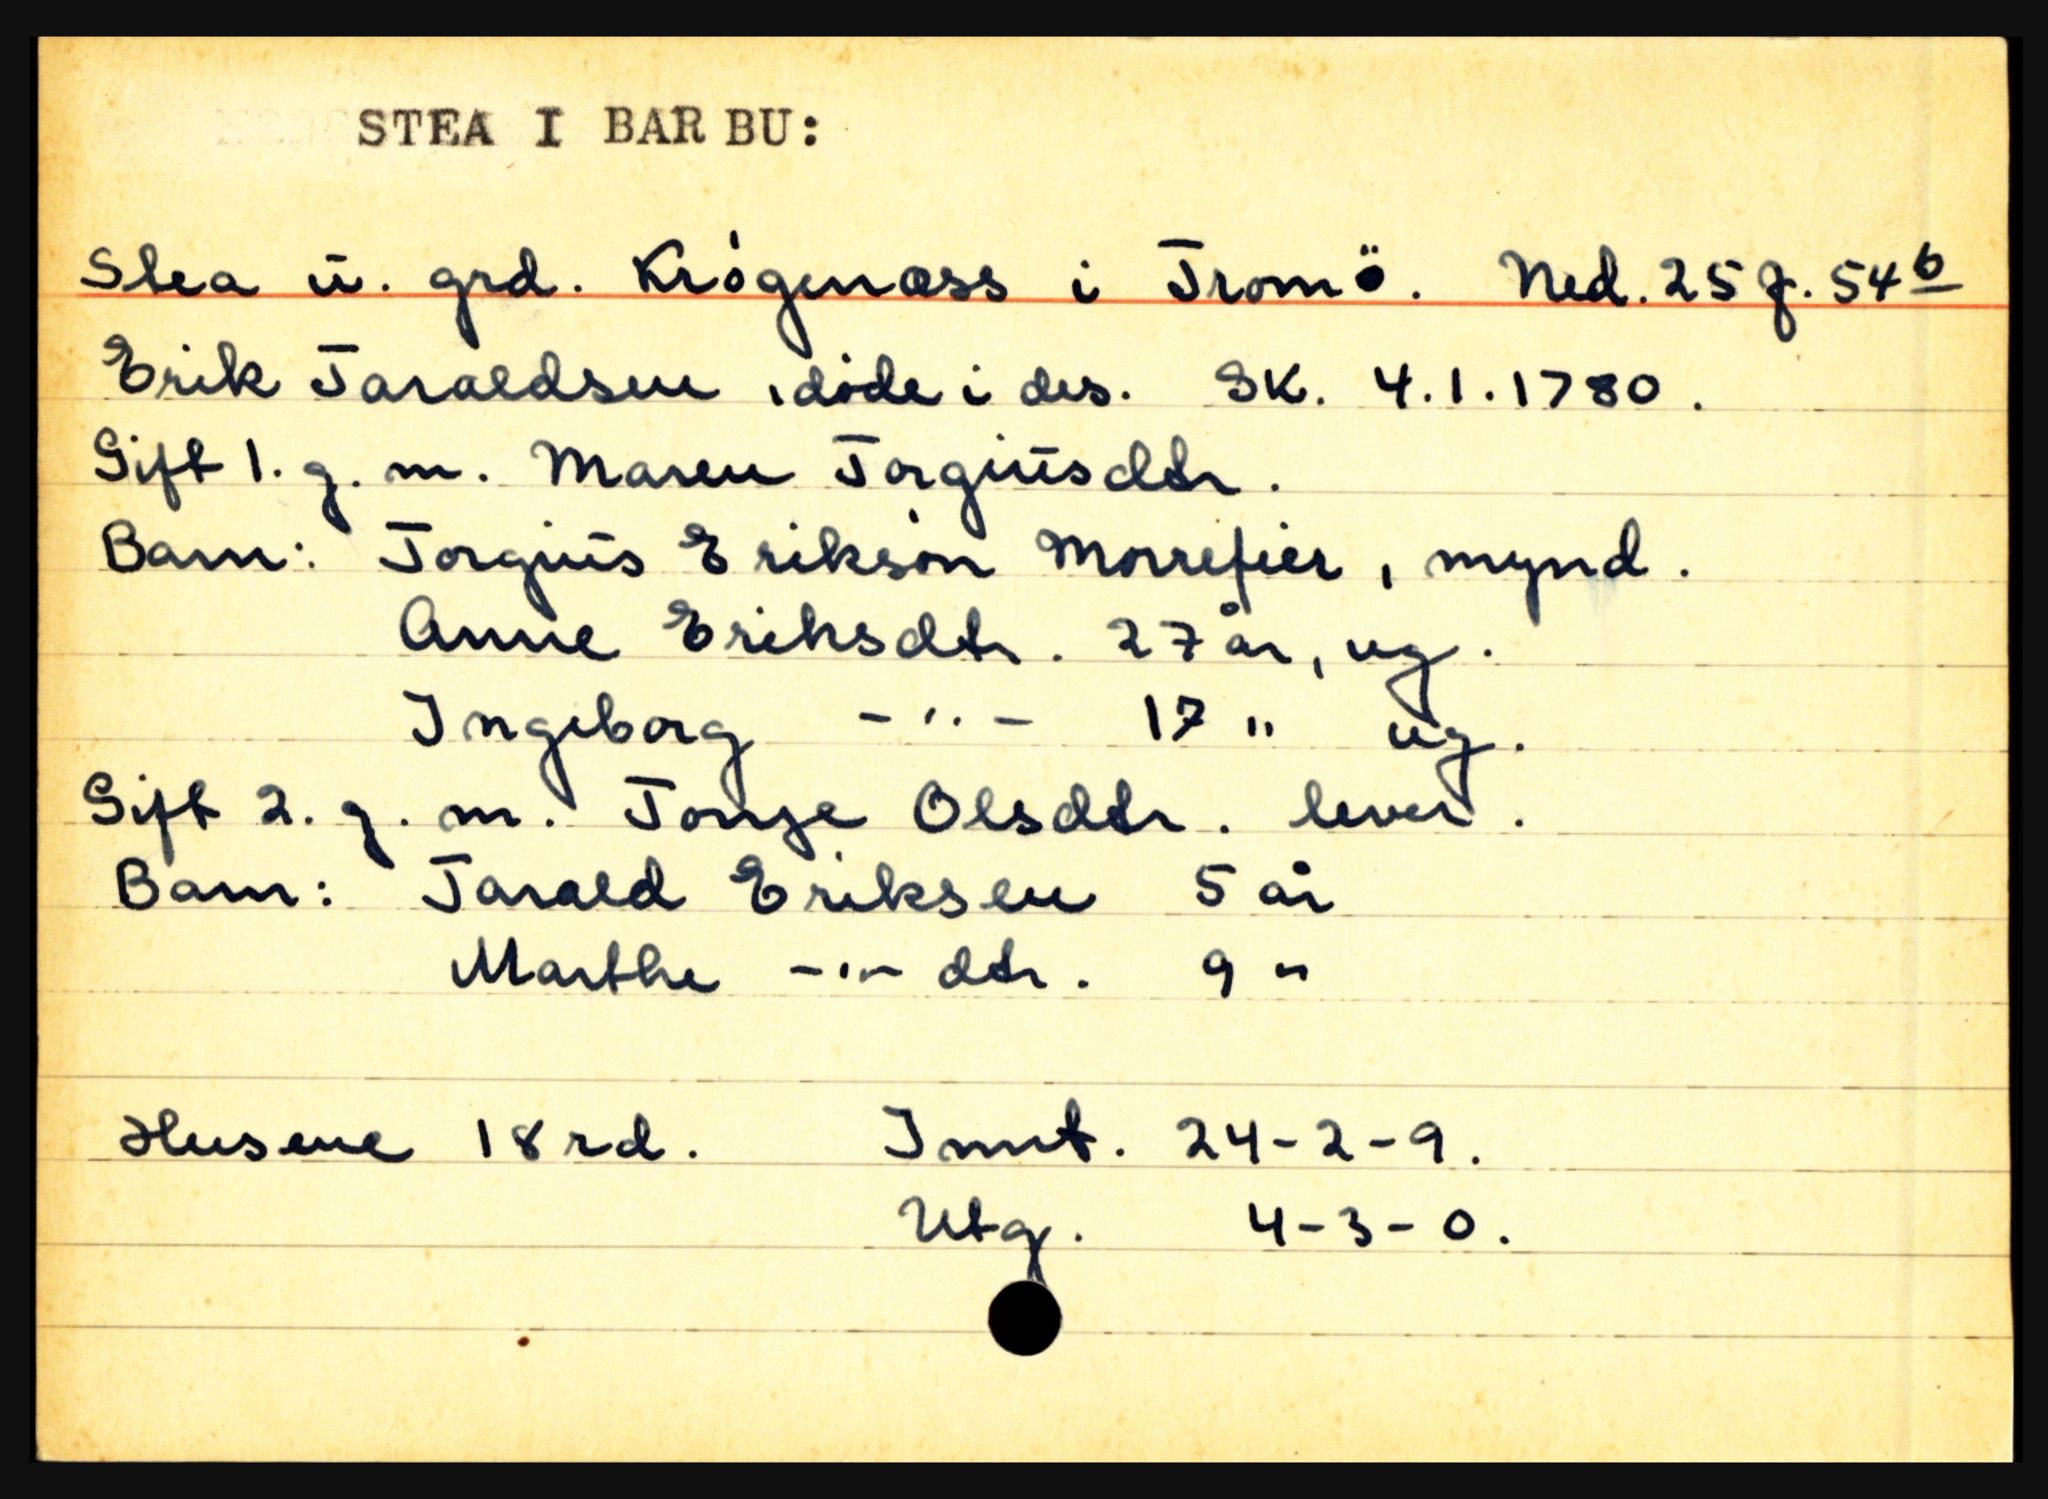 STEA I BARBU:
Stea ū. grd. Krögenæss i Tromö. Ned. 25 f. 54 b
Erik Taraldsen, döde i des. SK. 4.1.1780.
Gift 1. g. m. Maren Torgiūsdtr.
Barn: Torgiūs Eriksön Morrefier, mynd.
Anne Eriksdtr. 27 år, ug.
Ingeborg -"- 17 " ug.
Gift 2. g. m. Tonje Olsdtr. lever.
Barn: Tarald Eriksen 5 år
Marthe -"- dtr. 9 "
Husene 18 rd. Innt. 24-2-9.
Utg. 4-3-0.